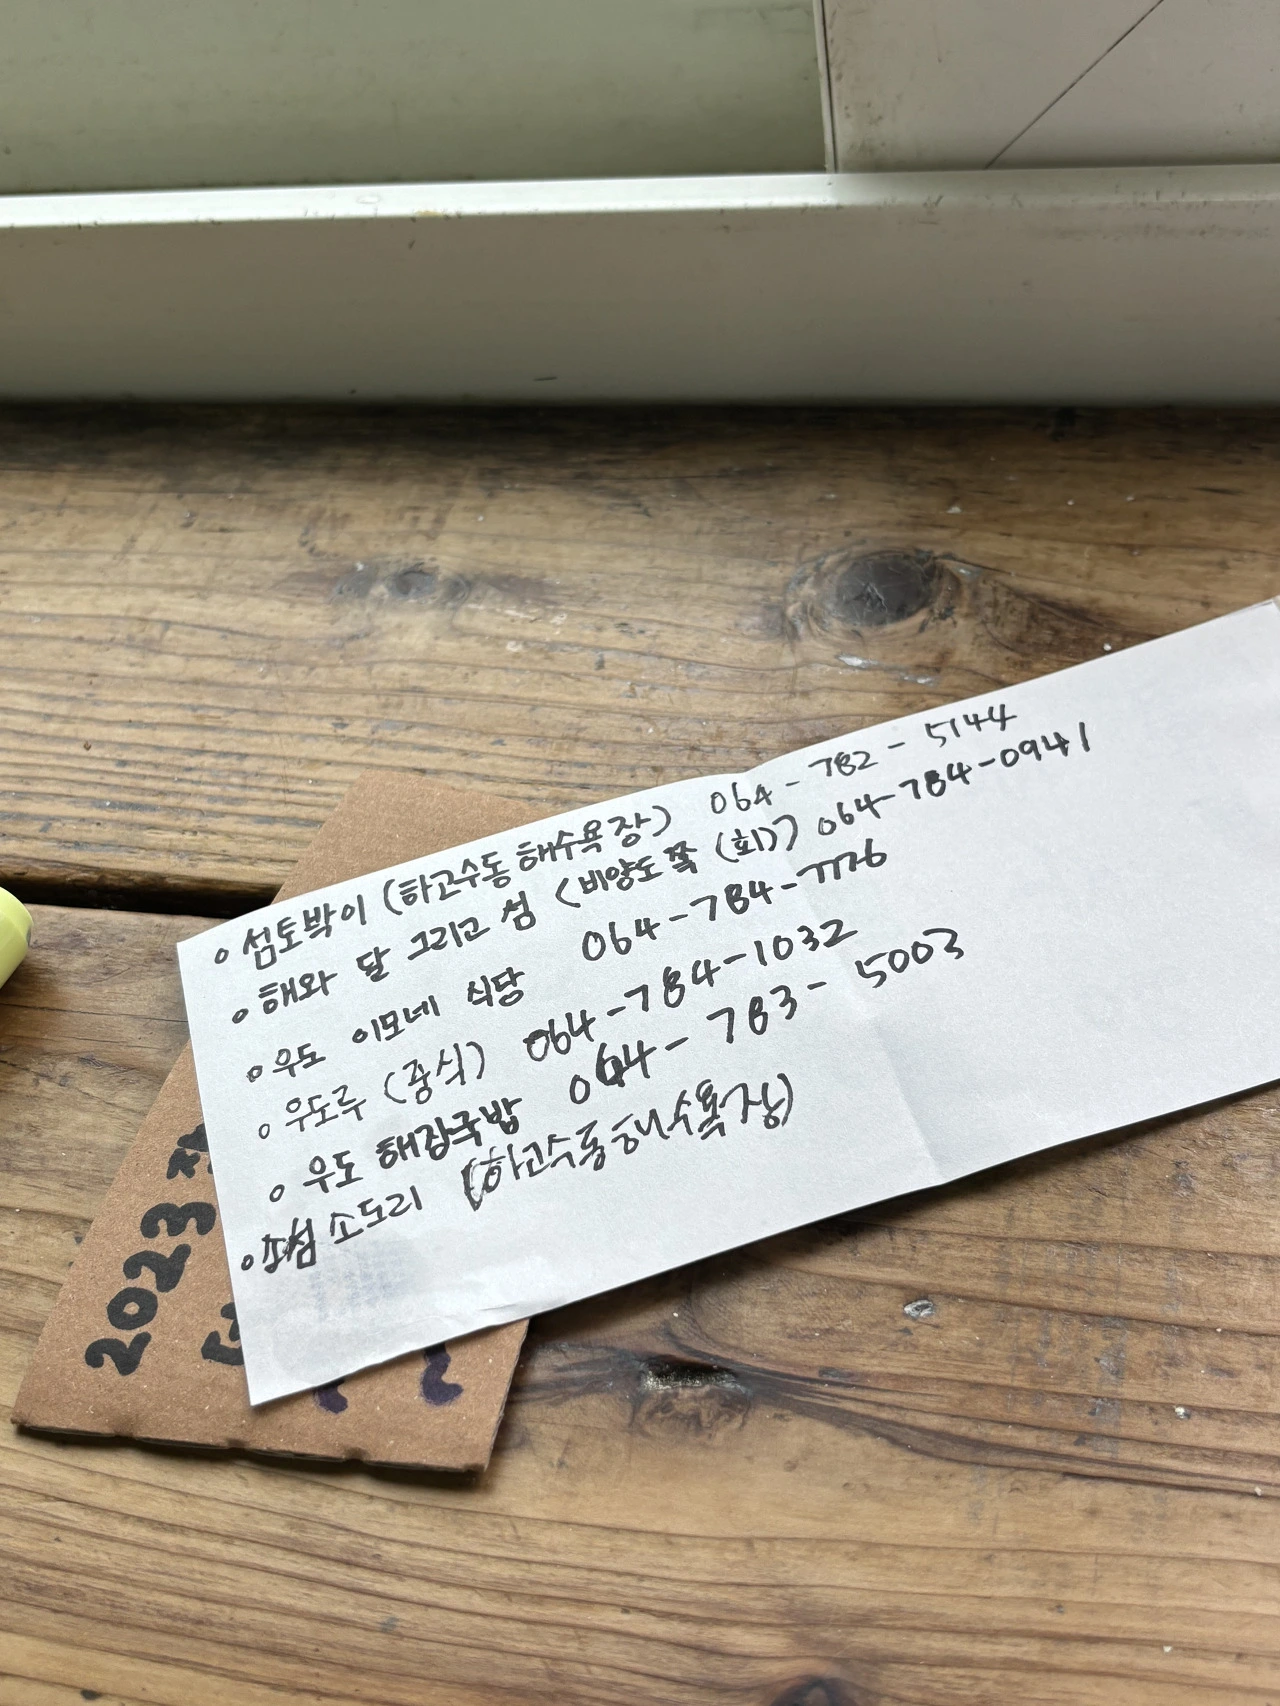 o 섬토박이 (하고수동 해수욕장) 064 - 782 - 5144
o 해와 달 그리고 섬 <비양도 쪽 (회)> 064-784-0941
o 우도 이모네 식당 064-784-7726
o 우도루 (중식) 064-784-1032
o 우도 해장국밥 064 - 783 - 5003
o 섬 소도리 (하고수동해수욕장)
2023